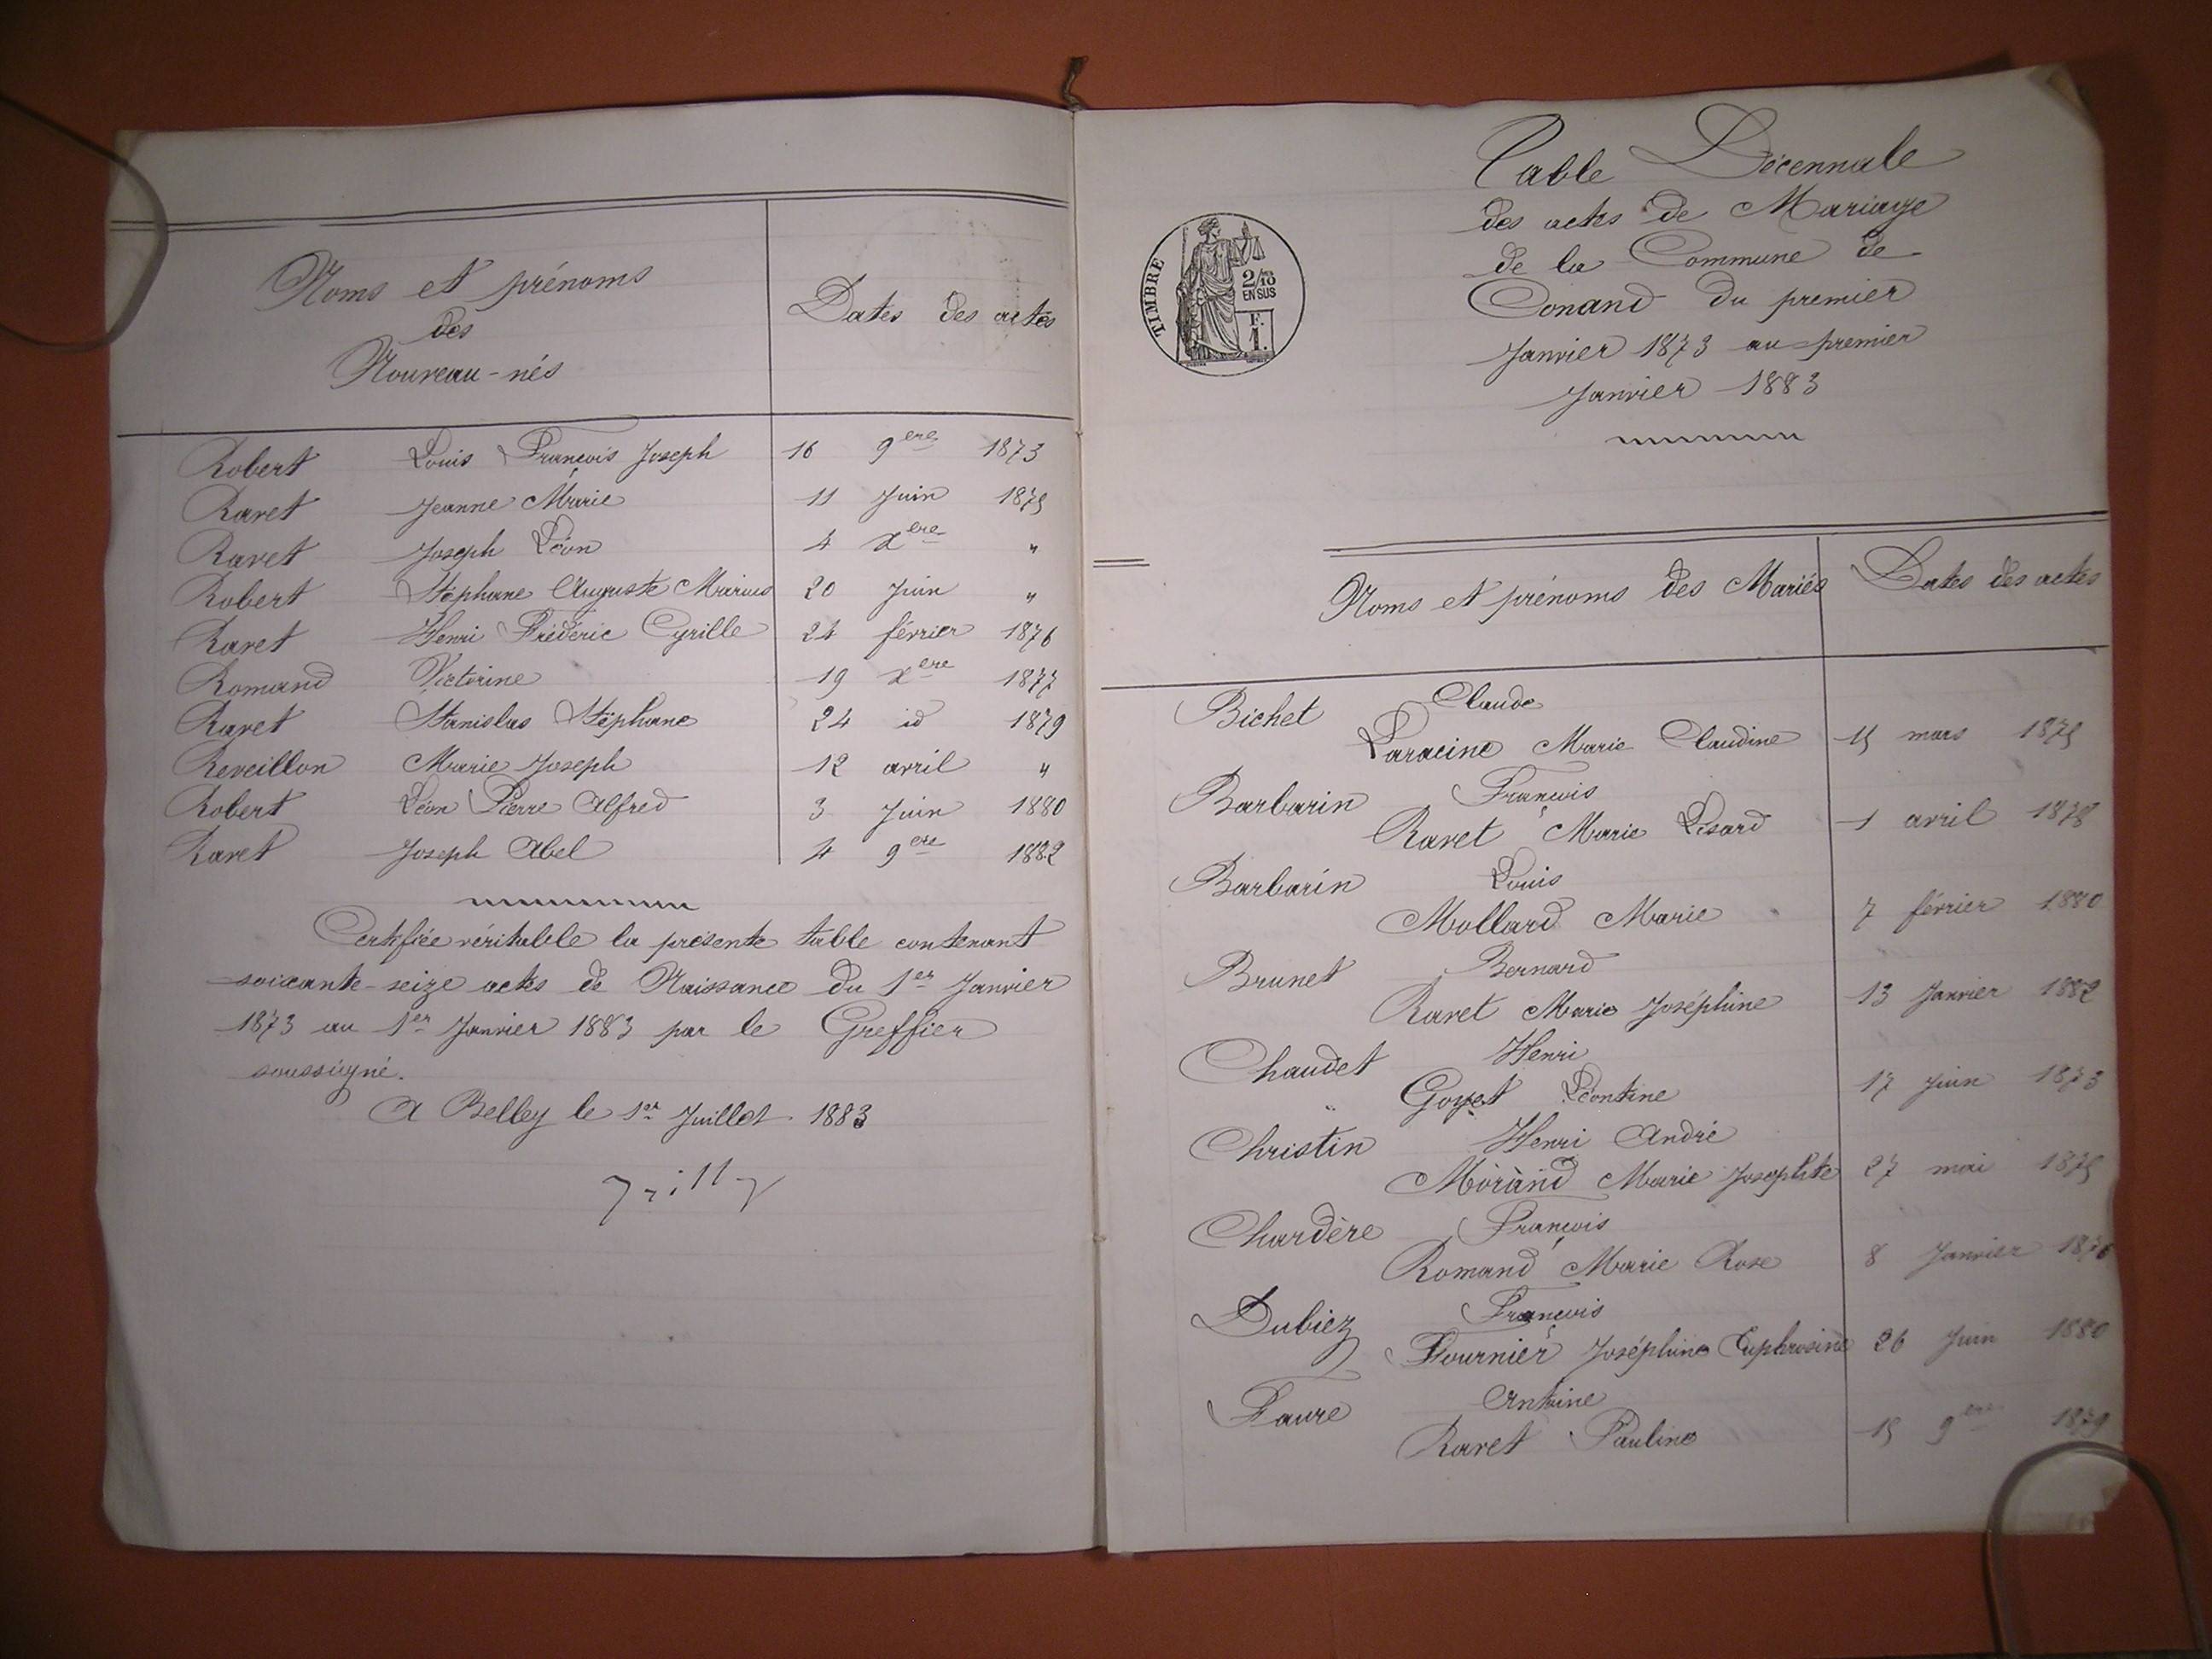 Noms et prénoms
des
Nouveau-nés
Dates des actes
Robert Louis François Joseph 16 9ere 1873
Ravet Jeanne Marie 11 Juin 1875
Ravet Joseph Léon 4 xere "
Robert Stéphane Auguste Marius 20 Juin "
Ravet Henri Fréderic Cyrille 24 février 1876
Romand Victorine 19 xere 1877
Ravet Stanislas Stéphane 24 id 1879
Reveillon Marie Joseph 12 avril "
Robert Léon Pierre Alfred 3 Juin 1880
Ravet Joseph Abel 4 9ere 1882
Certifiée véritable la présente table contenant
soixante-seize actes de Naissance du 1er Janvier
1873 au 1er Janvier 1883 par le Greffier
soussigné.
A Belley le 1er Juillet 1883
TIMBRE
2/10 EN SUS
F. 1.
Table Décennale
des actes de Mariage
de la Commune de
Conand du premier
Janvier 1873 au premier
Janvier 1883
Noms et prénoms des Mariés Dates des actes
Bichet Claude
Laracine Marie Claudine 15 mars 1875
Barbarin François
Ravet Marie Lésard 1 avril 1878
Barbarin Louis
Mollard Marie 7 février 1880
Brunet Bernard
Ravet Marie Joséphine 13 Janvier 1882
Chaudet Henri
" Goyet Léontine 17 Juin 1873
Christin Henri André
Morand Marie Josephte 27 mai 1875
Chardère François
Romand Marie Rose 8 Janvier 1876
Dubiez François
Fournier Joséphine Euphrosine 26 Juin 1880
Faure Antoine
Ravet Pauline 15 9ere 1879